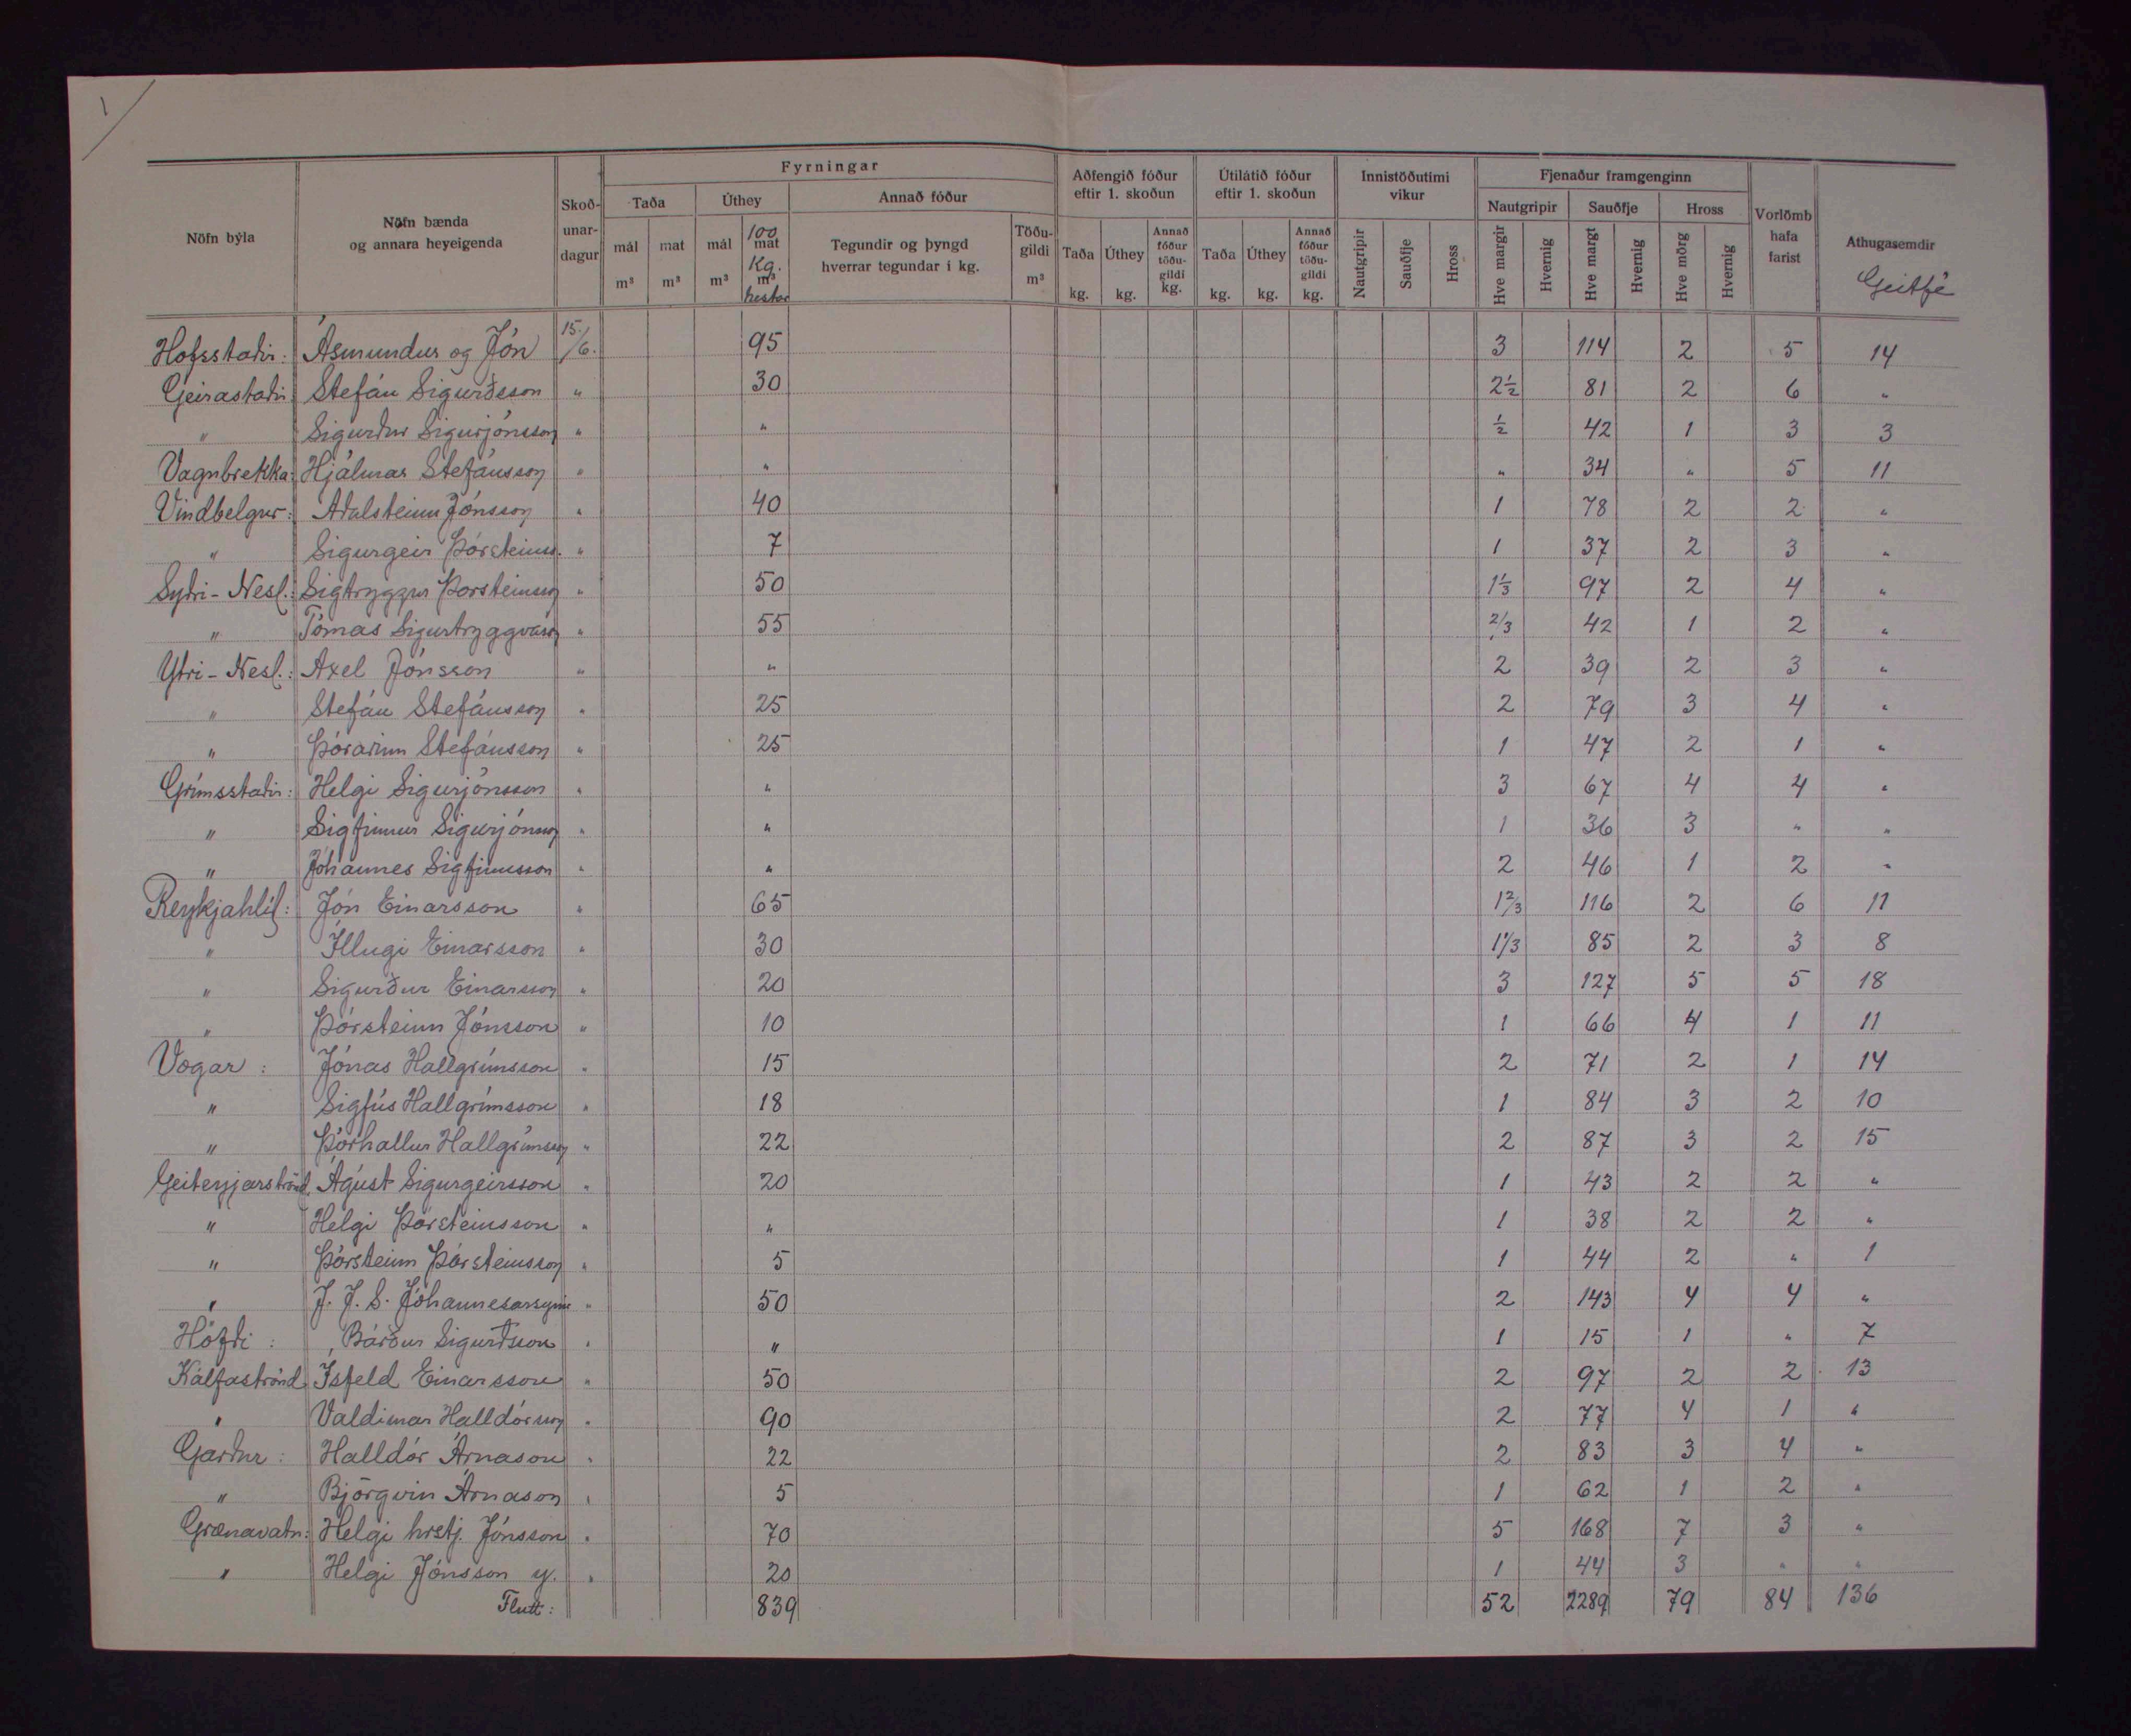 1
Nöfn býla
Nöfn bænda
og annara heyeigenda
Skoð-
unar-
dagur
Fyrningar
Taða
mál
m³
mat
m³
Úthey
mál
m³
100
mat
Kg.
m³
hestar
Annað fóður
Tegundir og þyngd
hverrar tegundar í kg.
Töðu-
gildi
m³
Aðfengið fóður
eftir 1. skoðun
Taða
kg.
Úthey
kg.
Annað
fóður
töðu-
gildi
kg.
Útilátið fóður
eftir 1. skoðun
Taða
kg.
Úthey
kg.
Annað
fóður
töðu-
gildi
kg.
Innistöðutími
vikur
Nautgripir
Sauðfje
Hross
Fjenaður framgenginn
Nautgripir
Hve margir
Hvernig
Sauðfje
Hve margt
Hvernig
Hross
Hve mörg
Hvernig
Vorlömb
hafa
farist
Athugasemdir
Geitfé
Hofsstaðir: Ásmundur og Jón 15./6. 95 3 114 2 5 14
Geirastaðir: Stefán Sigurðsson " 30 2½ 81 2 6 "
" Sigurður Sigurjónsson " " ½ 42 1 3 3
Vagnbrekka: Hjálmar Stefánsson " " " 34 " 5 11
Vindbelgur: Aðalsteinn Jónsson " 40 1 78 2 2 "
" Sigurgeir Þórsteinss. " 7 1 37 2 3 "
Syðri-Nesl.: Sigtryggur Þorsteinsson " 50 1⅓ 97 2 4 "
" Tómas Sigurtryggvason " 55 2/3 42 1 2 "
Ytri-Nesl.: Axel Jónsson " " 2 39 2 3 "
" Stefán Stefánsson " 25 2 79 3 4 "
" Þórarinn Stefánsson " 25 1 47 2 1 "
Grímsstaðir: Helgi Sigurjónsson " " 3 67 4 4 "
" Sigfinnur Sigurjónsson " " 1 36 3 " "
" Jóhannes Sigfinnsson " " 2 46 1 2 "
Reykjahlíð: Jón Einarsson " 65 1 2/3 116 2 6 11
" Illugi Einarsson " 30 1 1/3 85 2 3 8
" Sigurður Einarsson " 20 3 127 5 5 18
" Þórsteinn Jónsson " 10 1 66 4 1 11
Vogar: Jónas Hallgrímsson " 15 2 71 2 1 14
" Sigfús Hallgrímsson " 18 1 84 3 2 10
" Þórhallur Hallgrímsson " 22 2 87 3 2 15
Geiteyjarströnd Ágúst Sigurgeirsson " 20 1 43 2 2 "
" Helgi Þórsteinsson " " 1 38 2 2 "
" Þórsteinn Þórsteinsson " 5 1 44 2 " 1
" J. J. S. Jóhannesarsynir " 50 2 143 4 4 "
Höfði: Bárður Sigurðsson " " 1 15 1 " 7
Kálfaströnd Ísfeld Einarsson " 50 2 97 2 2 13
" Valdimar Halldórsson " 90 2 77 4 1 "
Garður: Halldór Árnason " 22 2 83 3 4 "
" Björgvin Árnason " 5 1 62 1 2 "
Grænavatn: Helgi hrstj. Jónsson " 70 5 168 7 3 "
" Helgi Jónsson y. " 20 1 44 3 " "
Flutt: 839 52 2289 79 84 136